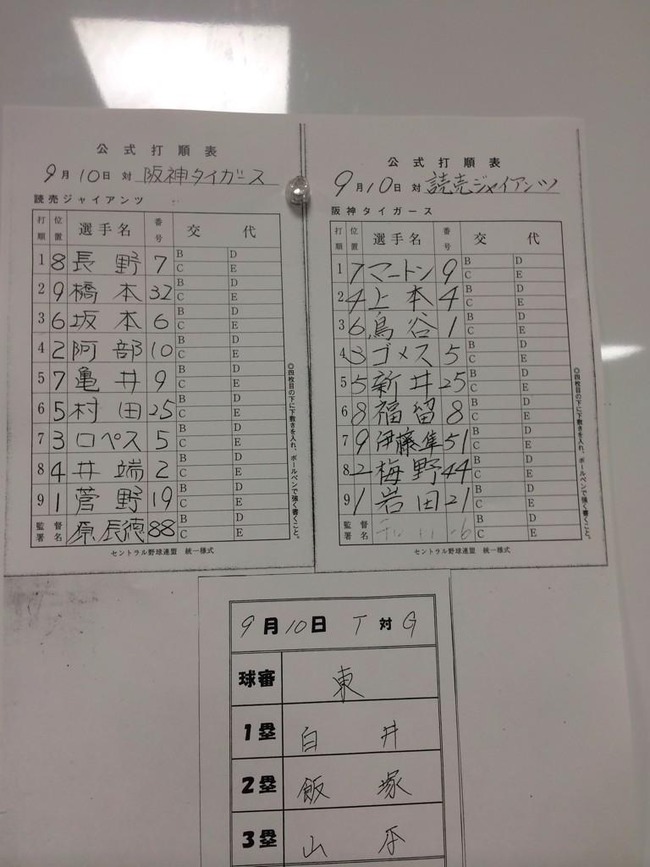 公式打順表
9月10日 対 阪神タイガース
読売ジャイアンツ
打順 位置 選手名 番号 交代
1 8 長野 7 B C D E
2 9 橋本 32 B C D E
3 6 坂本 6 B C D E
4 2 阿部 10 B C D E
5 7 亀井 9 B C D E
6 5 村田 25 B C D E
7 3 ロペス 5 B C D E
8 4 井端 2 B C D E
9 1 菅野 19 B C D E
監督署名 原辰徳 88 B C D E
◎四枚目の下に下敷きを入れ、ボールペンで強く書くこと。
セントラル野球連盟 統一様式
公式打順表
9月10日 対 読売ジャイアンツ
阪神タイガース
打順 位置 選手名 番号 交代
1 7 マートン 9 B C D E
2 4 上本 4 B C D E
3 6 鳥谷 1 B C D E
4 3 ゴメス 5 B C D E
5 5 新井 25 B C D E
6 8 福留 8 B C D E
7 9 伊藤隼 51 B C D E
8 2 梅野 44 B C D E
9 1 岩田 21 B C D E
監督署名 B C D E
◎四枚目の下に下敷きを入れ、ボールペンで強く書くこと。
セントラル野球連盟 統一様式
9月10日 T 対 G
球審 東
1塁 白井
2塁 飯塚
3塁 山本